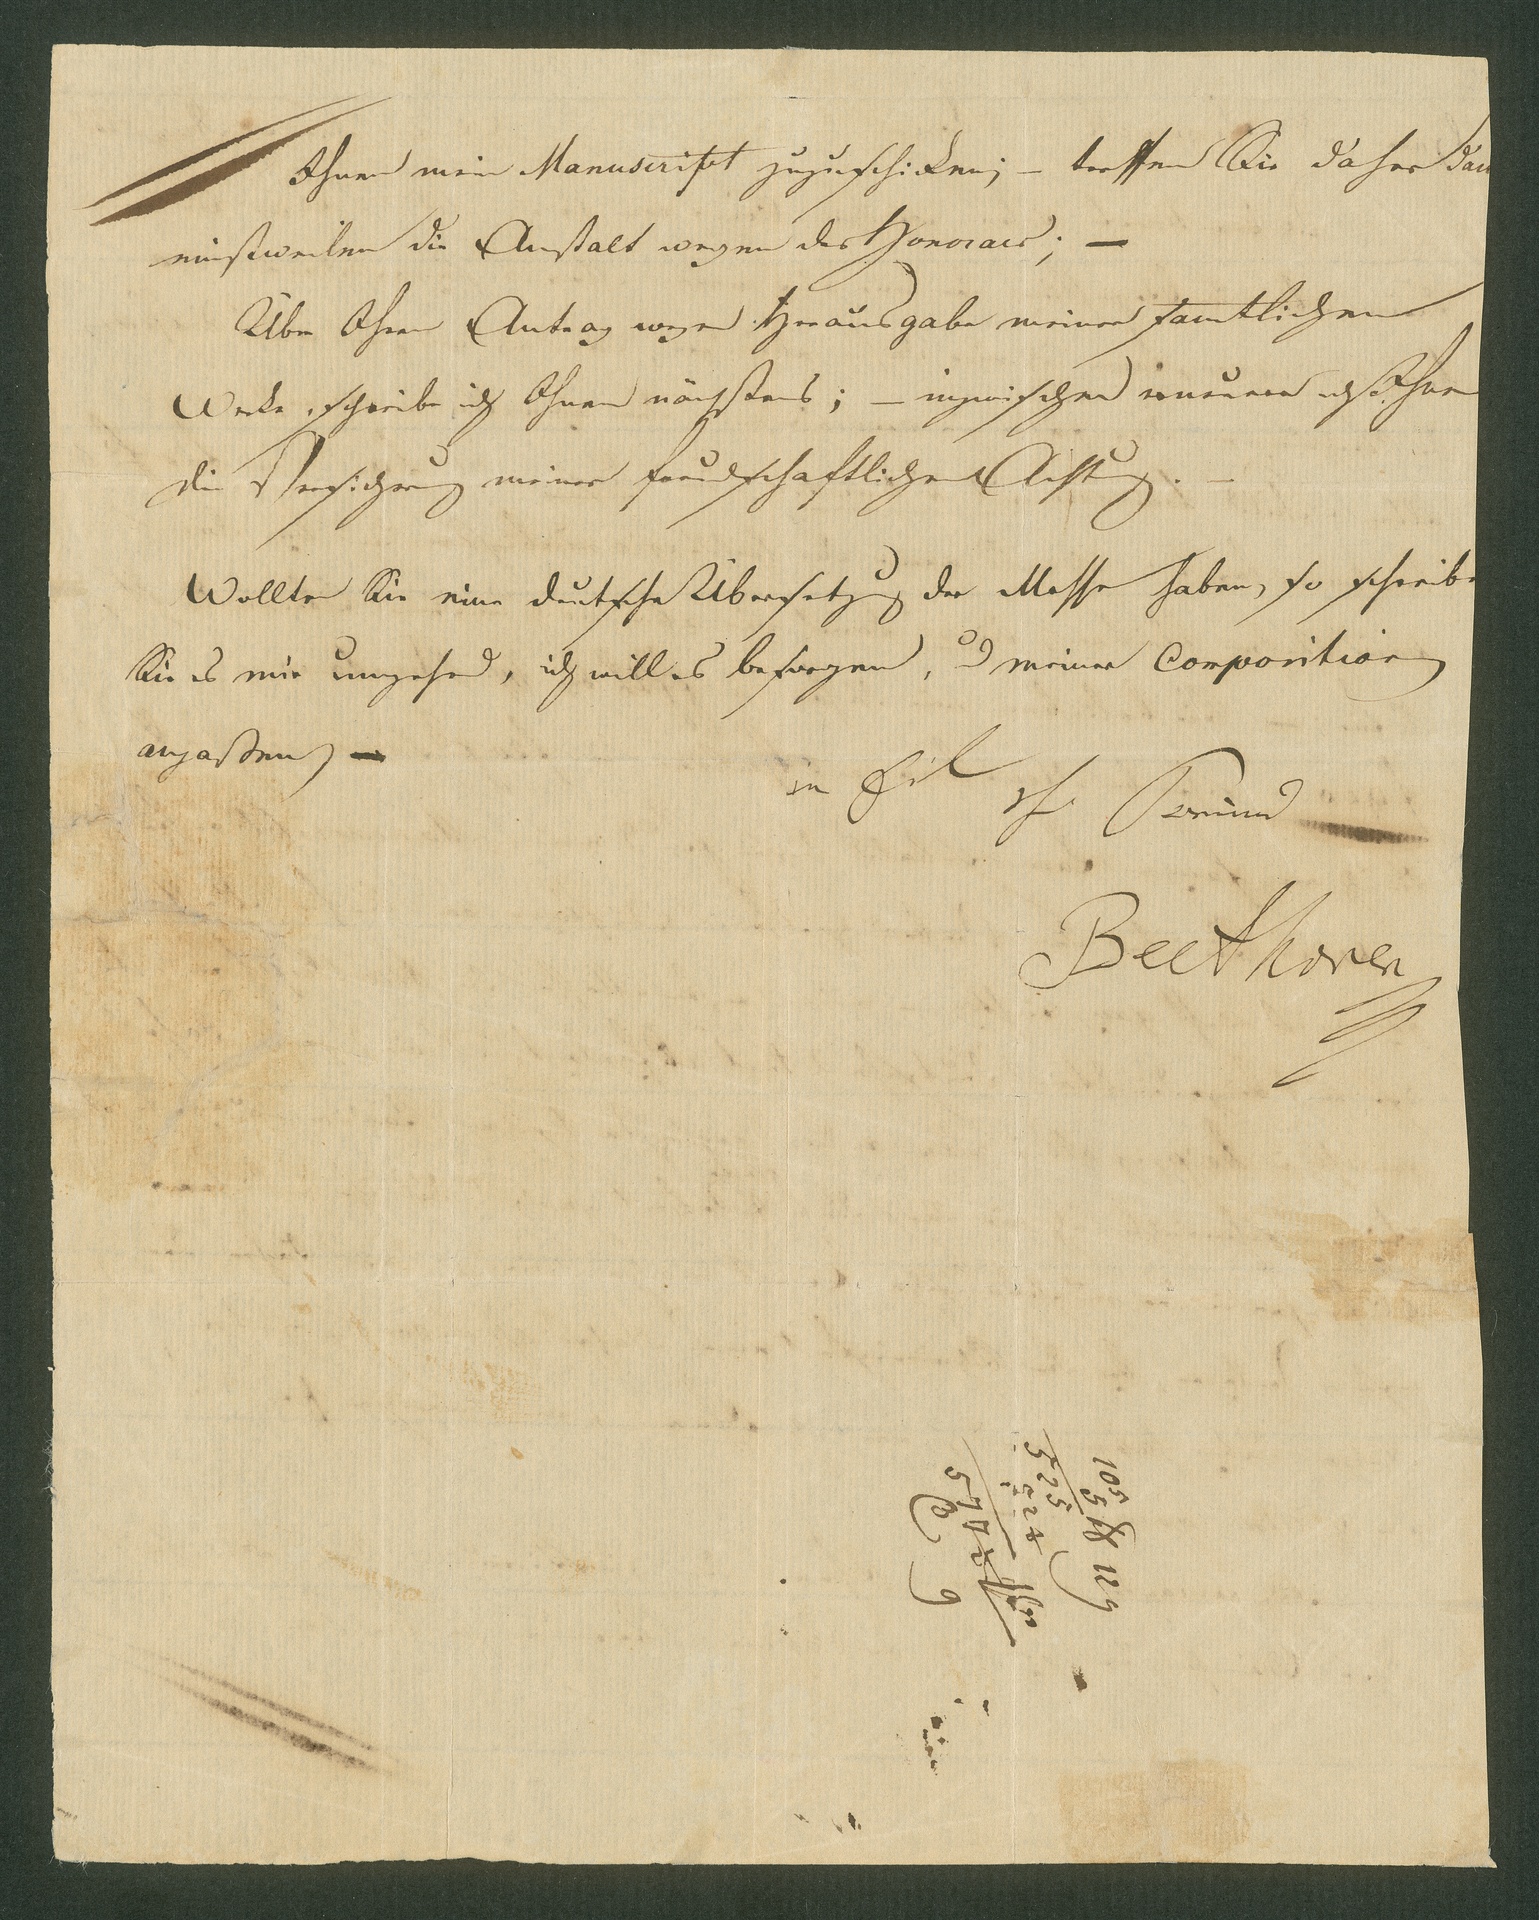 Ihnen mein Manuscript zuzuschicken; – treffen Sie daher
einstweilen die Anstalt wegen des Honorars; –
Über Ihren Antrag wegen Herausgabe meiner samtlichen
Werke, schreibe ich Ihnen nächstens; – inzwischen erneuere ich Ihnen
die Versicherung meiner freundschaftlichen Achtung. –
Wollten Sie eine deutsche Übersetzung der Messe haben, so schreiben
Sie es mir umgehend, ich will es besorgen, und meiner Composition
anpassen, –
in Eil Ihr Freund
Beethoven
105
5 12
525
524